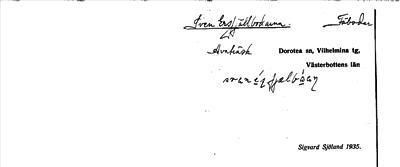 Sven Ersfjällbodarna. Fäbodar
Avaträsk Dorotea sn, Vilhelmina tg,
Västerbottens län
Sigvard Sjöland 1935.